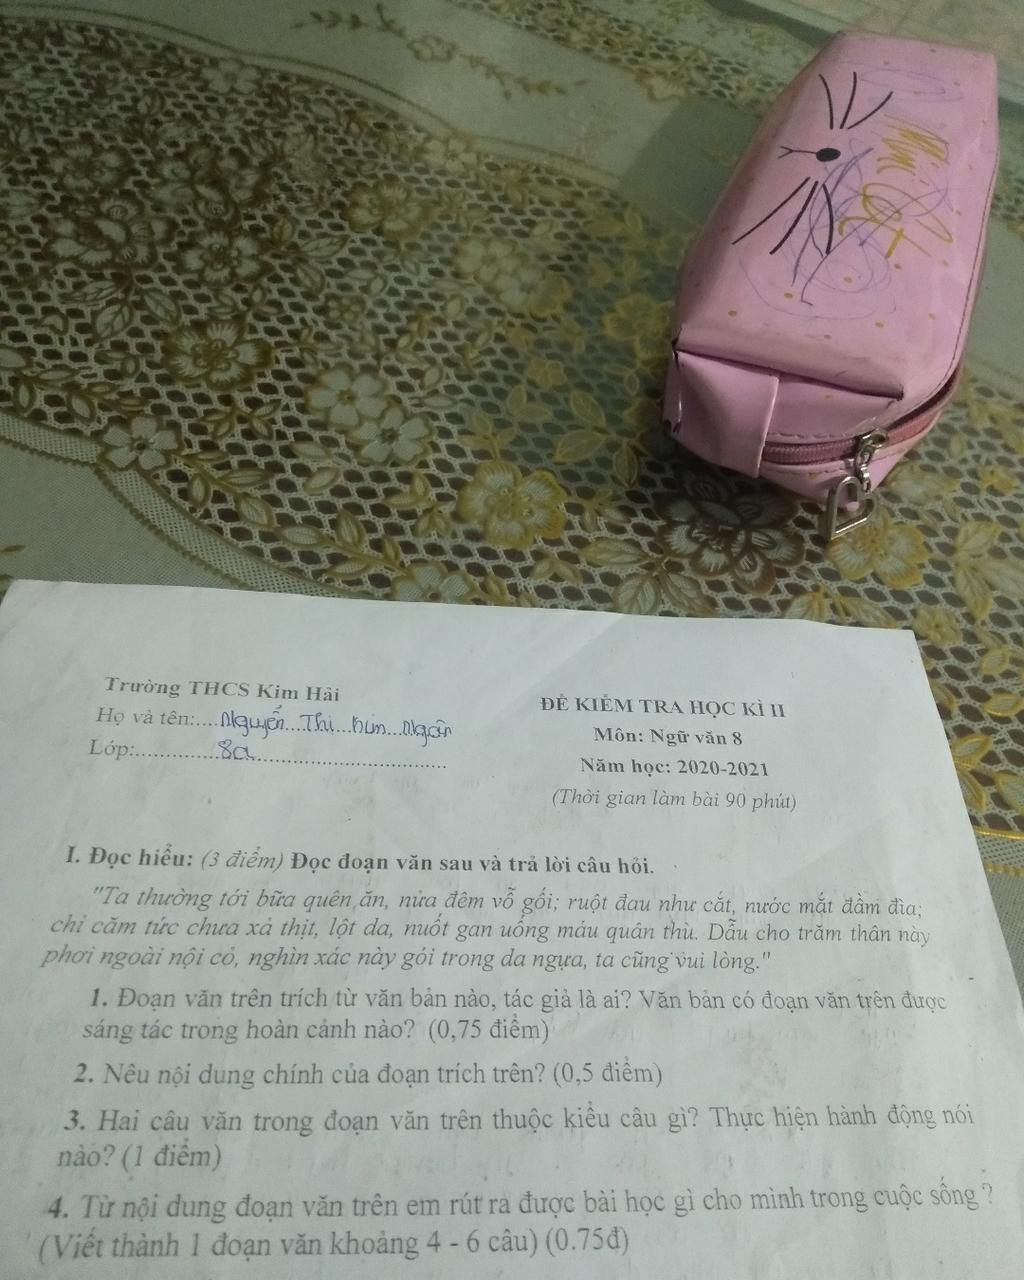 Trường THCS Kim Hải
Họ và tên:....Nguyễn...Thị...Kim...Ngân
Lớp:..............8a................................
ĐỀ KIỂM TRA HỌC KÌ II
Môn: Ngữ văn 8
Năm học: 2020-2021
(Thời gian làm bài 90 phút)
I. Đọc hiểu: (3 điểm) Đọc đoạn văn sau và trả lời câu hỏi.
"Ta thường tới bữa quên ăn, nửa đêm vỗ gối; ruột đau như cắt, nước mắt đầm đìa;
chỉ căm tức chưa xả thịt, lột da, nuốt gan uống máu quân thù. Dẫu cho trăm thân này
phơi ngoài nội cỏ, nghìn xác này gói trong da ngựa, ta cũng vui lòng."
1. Đoạn văn trên trích từ văn bản nào, tác giả là ai? Văn bản có đoạn văn trên được
sáng tác trong hoàn cảnh nào? (0,75 điểm)
2. Nêu nội dung chính của đoạn trích trên? (0,5 điểm)
3. Hai câu văn trong đoạn văn trên thuộc kiểu câu gì? Thực hiện hành động nói
nào? (1 điểm)
4. Từ nội dung đoạn văn trên em rút ra được bài học gì cho mình trong cuộc sống ?
(Viết thành 1 đoạn văn khoảng 4 - 6 câu) (0.75đ)